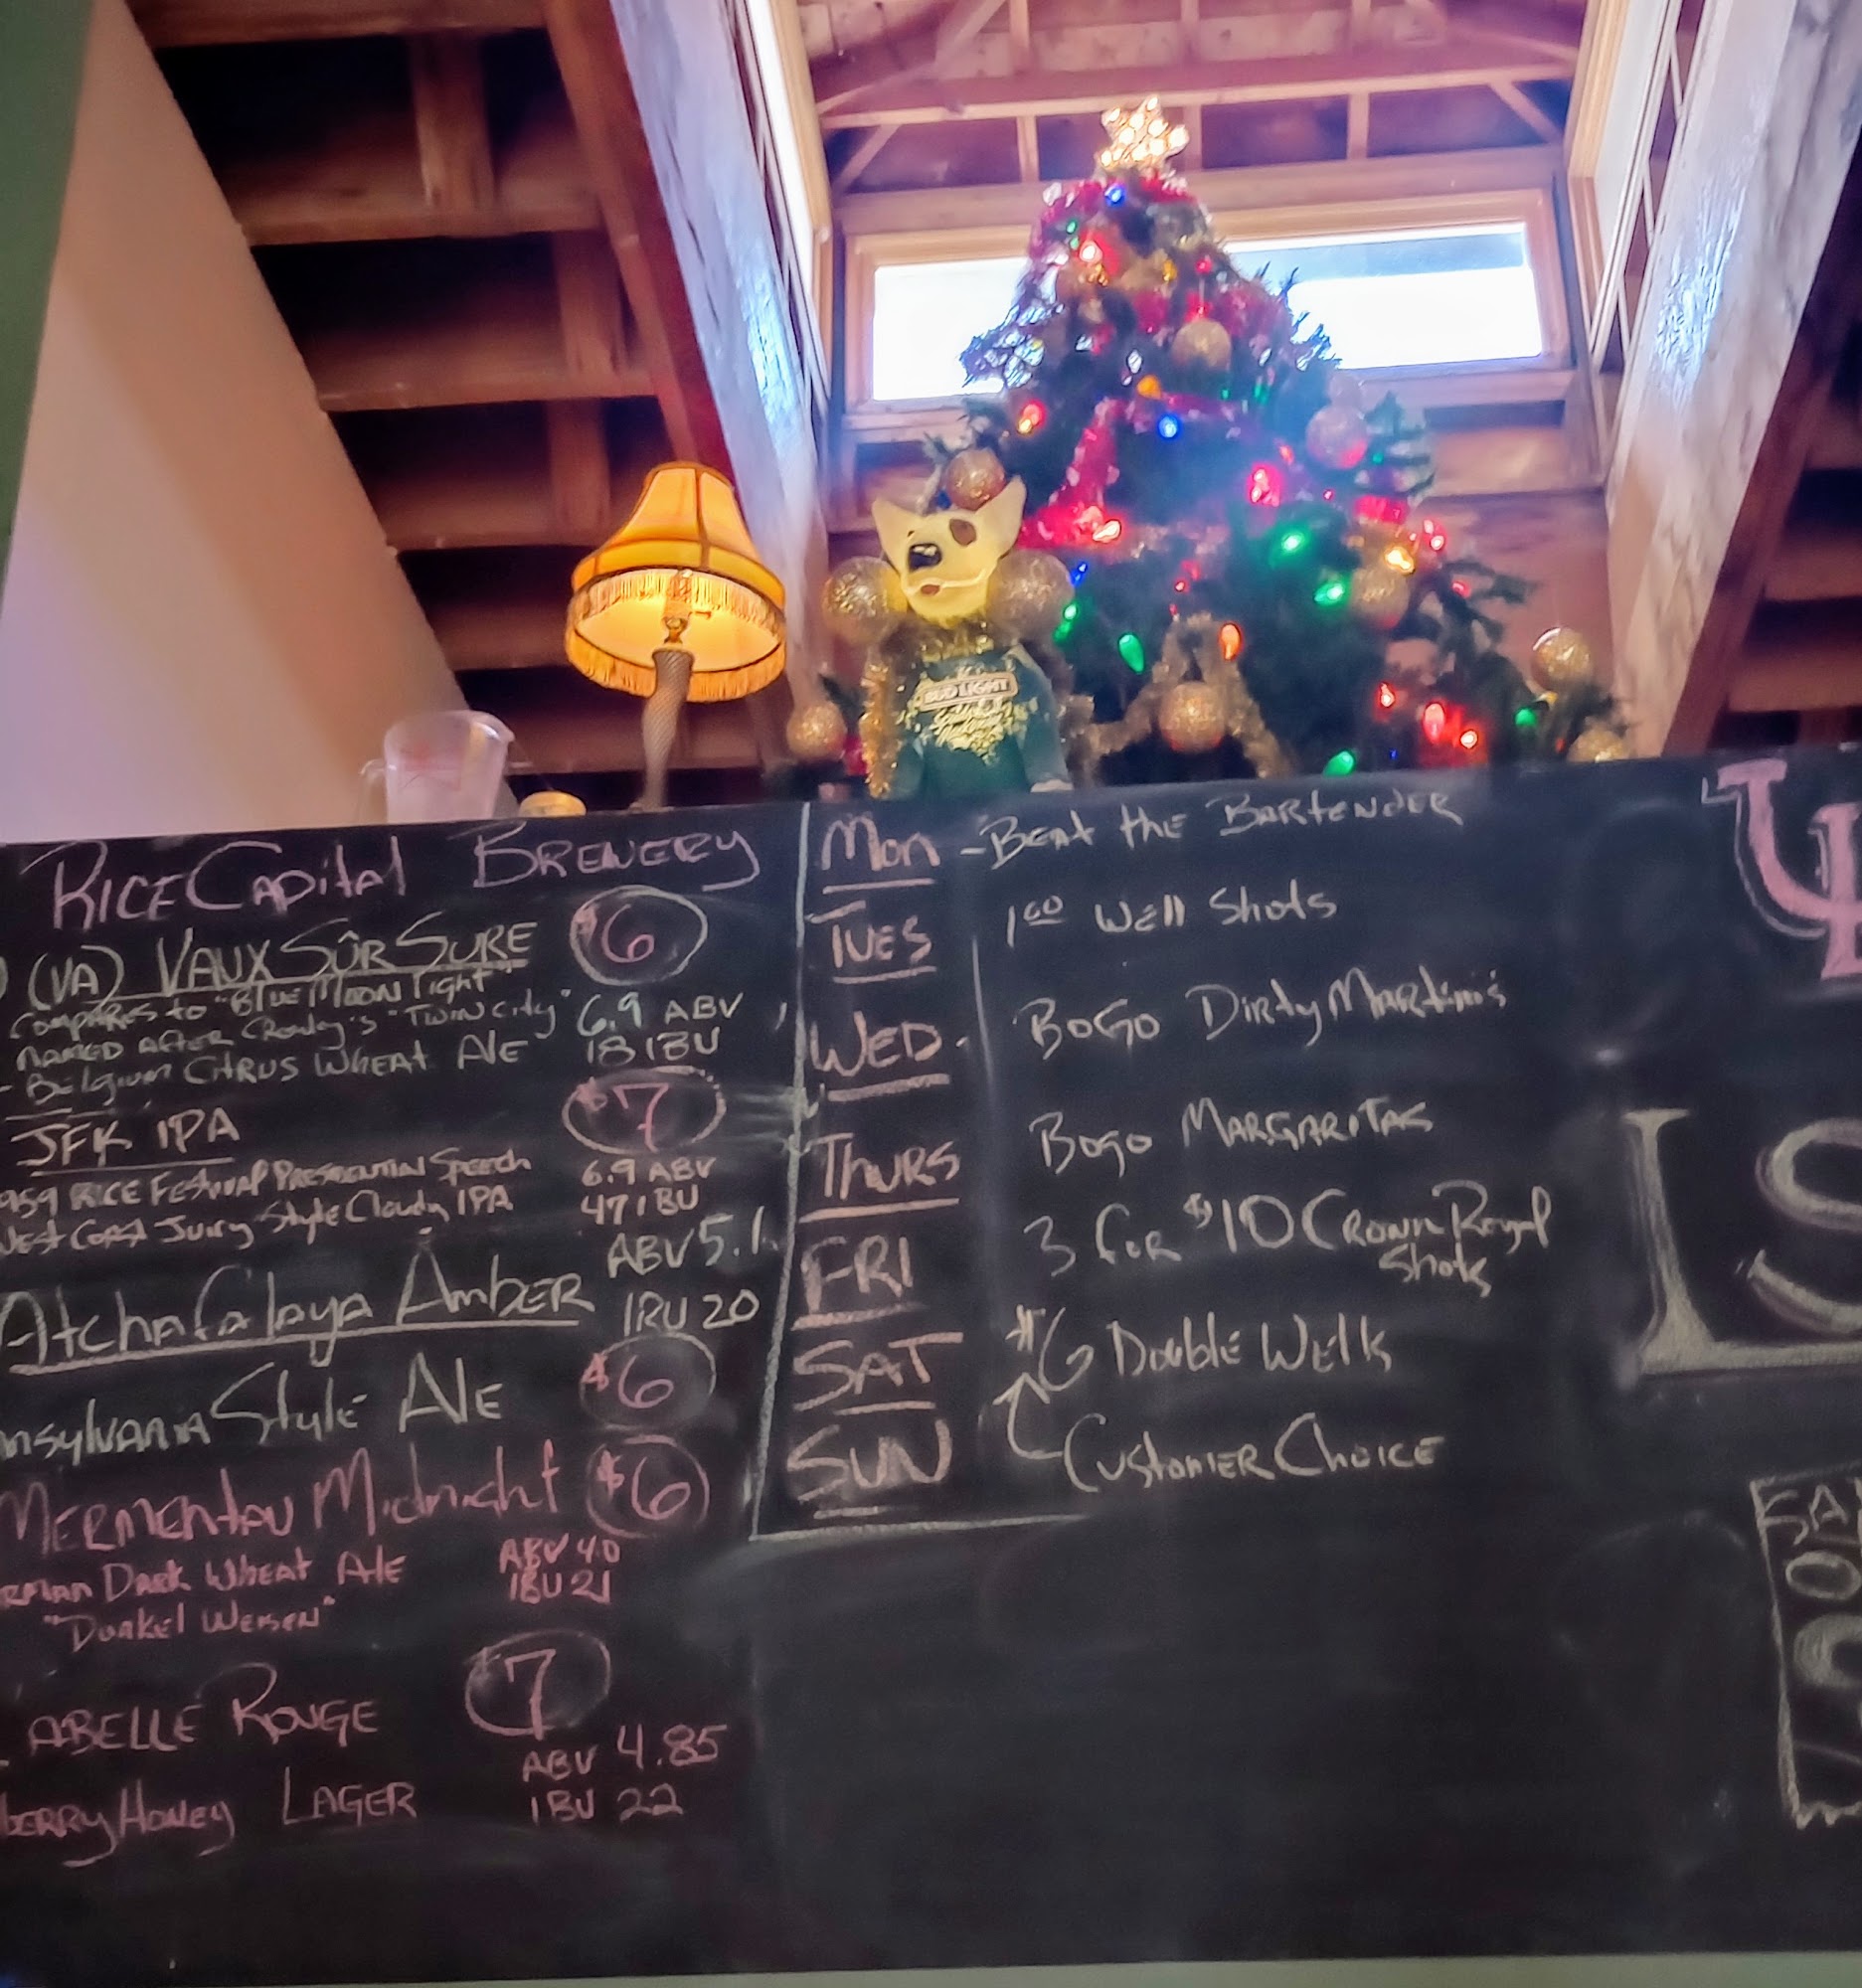 BUD LIGHT
RICE CAPITAL BREWERY
(VA) VAUX SÛR SURE $6
COMPARES to "BLUE MOON LIGHT"
NAMED AFTER CROWLEY'S "TWIN CITY" 6.9 ABV
- BELGIUM CITRUS WHEAT ALE 18 IBU
JFK IPA $7
959 RICE FESTIVAL PRESIDENTIAL SPEECH 6.9 ABV
WEST COAST JUICY STYLE CLOUDY IPA 47 IBU
ABV 5.1
AtchaFalaya AMBER IBU 20
nnsylvania Style ALE $6
MERMENTAU MIDNIGHT $6
ERMAN DARK WHEAT ALE ABV 4.0
IBU 21
"DUNKEL WEISEN"
ABELLE ROUGE $7
ABV 4.85
BERRY HONEY LAGER IBU 22
MON - BEAT THE BARTENDER
TUES 1.00 WELL SHOTS
WED. BOGO DIRTY MARTINI'S
THURS BOGO MARGARITAS
FRI 3 FOR $10 CROWN ROYAL
SHOTS
SAT $6 DOUBLE WELLS
SUN CUSTOMER CHOICE
UL
LS
SA